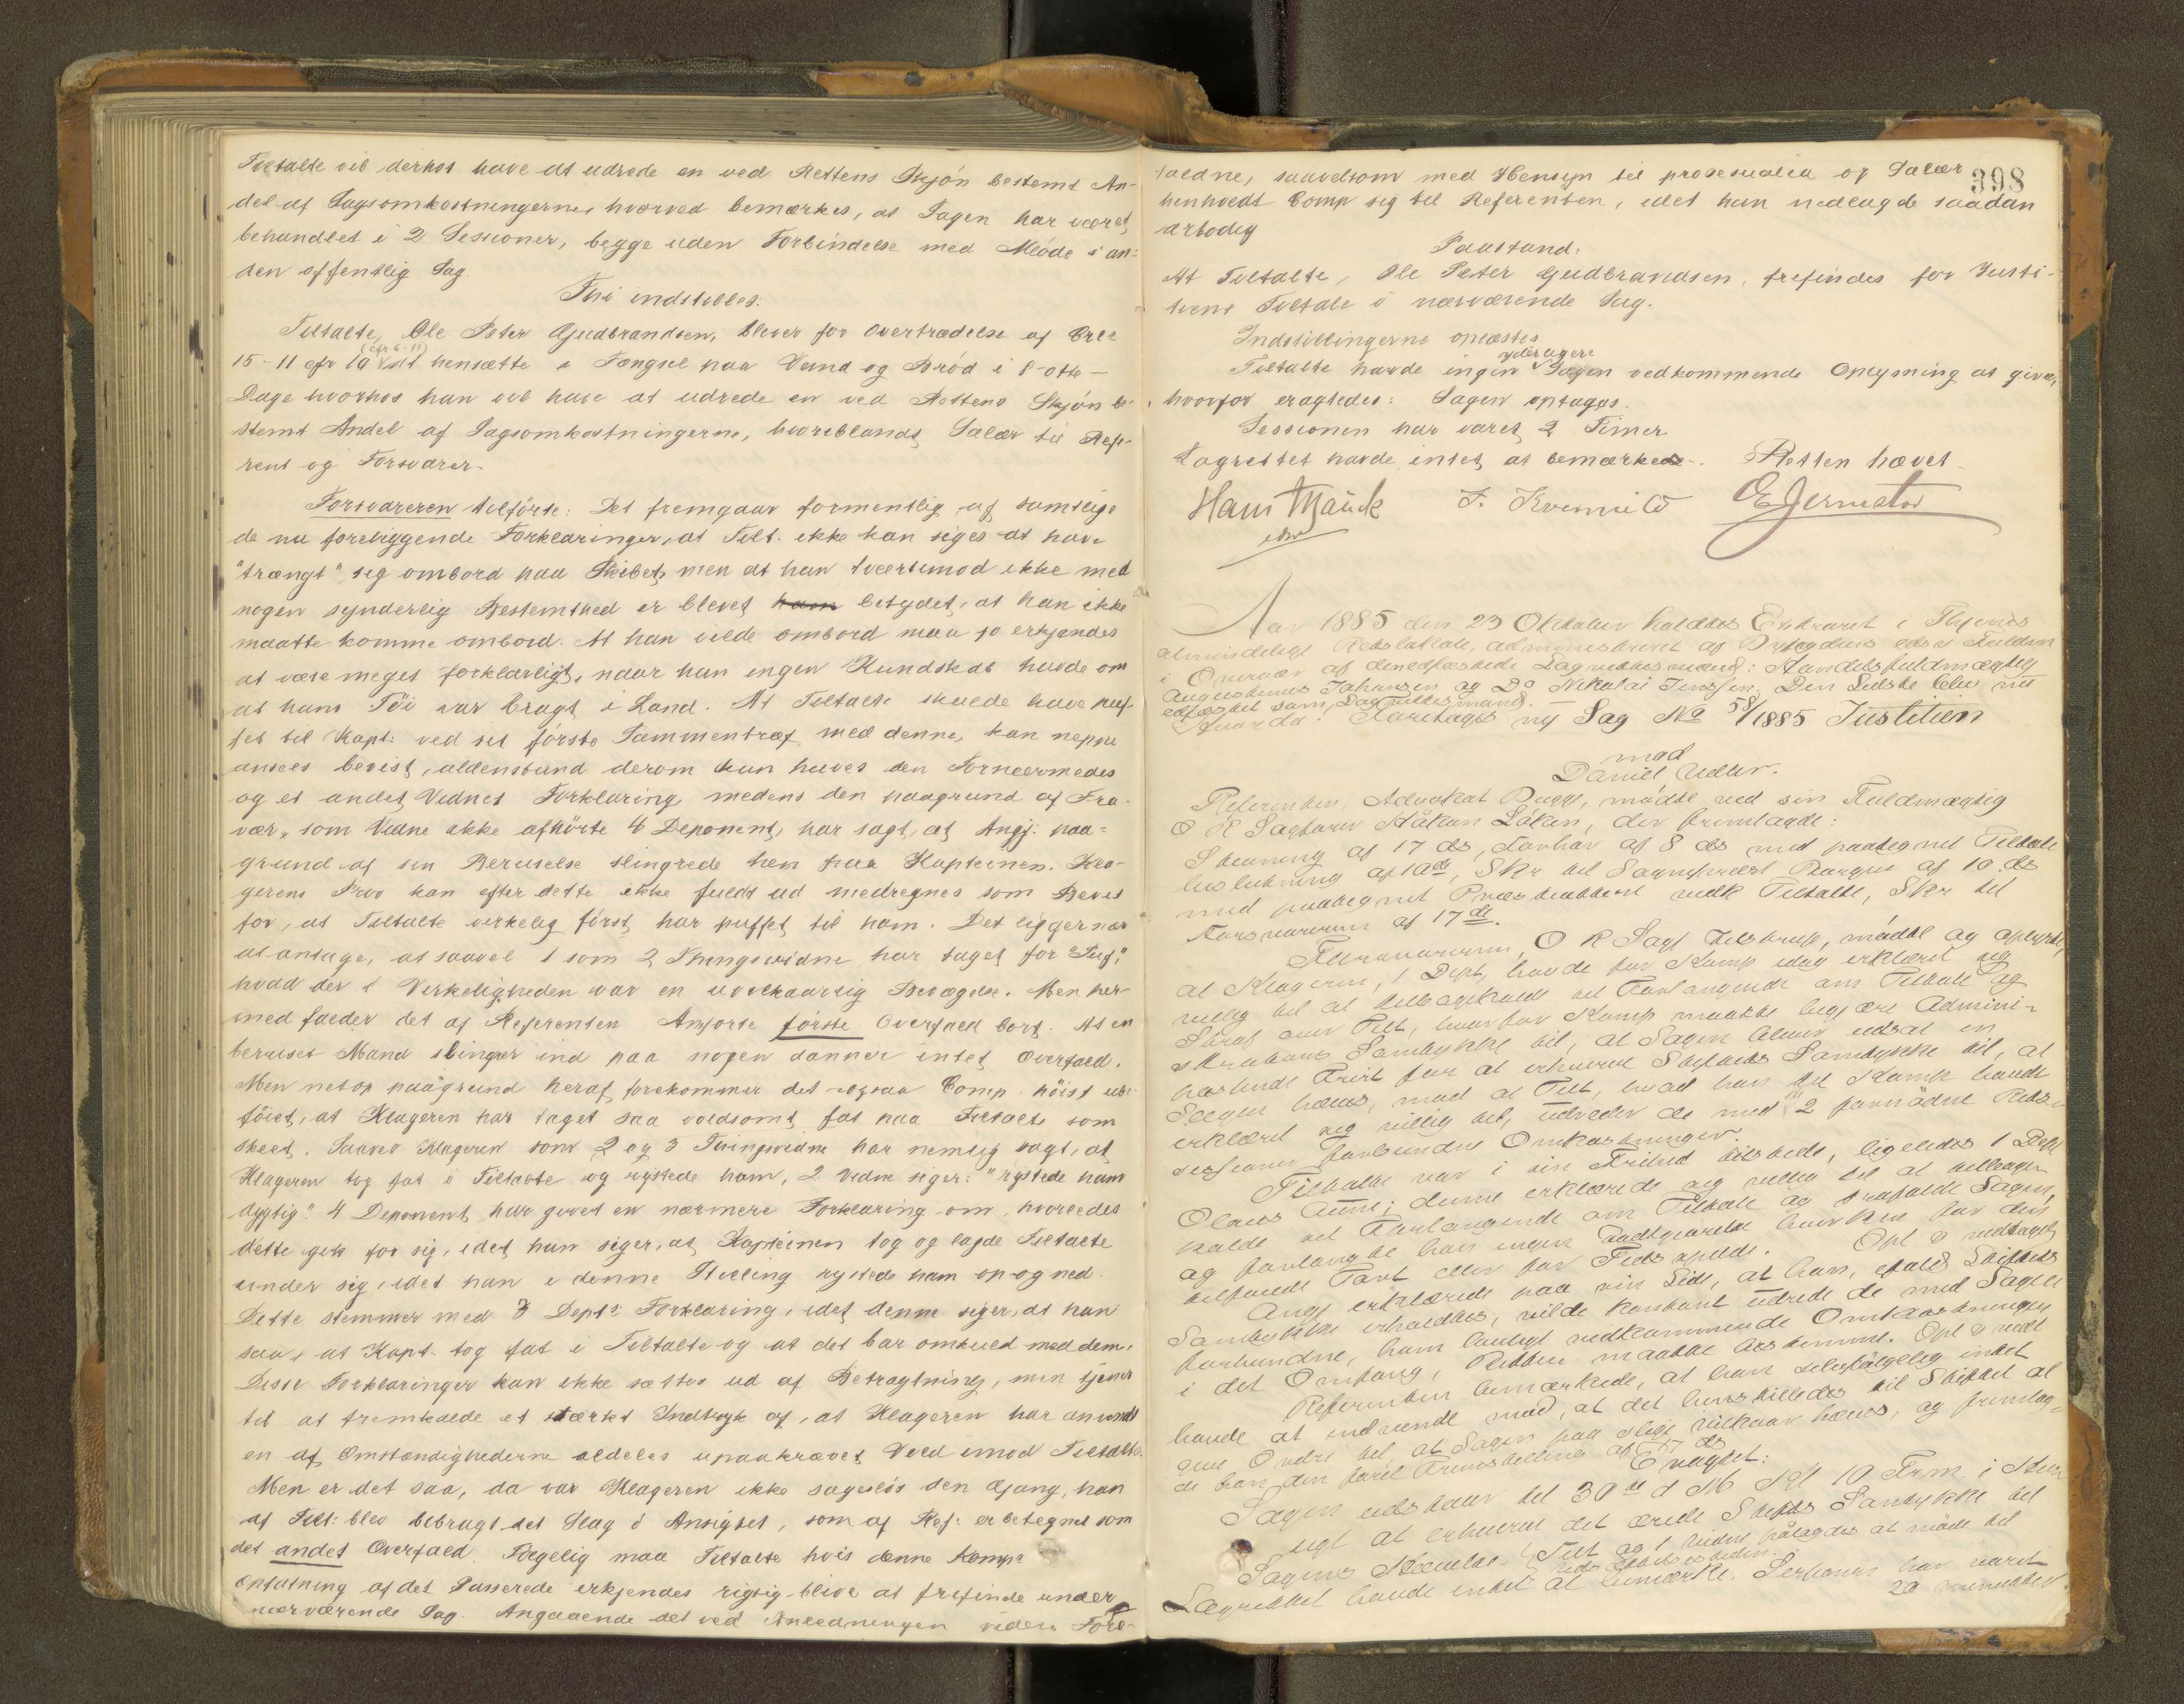 Tiltalte vil derhos have at udrede en ved Rettens Skjøn bestemt An-
del af Sagsomkostningerne, hvorved bemærkes, at Sagen har været
behandlet i 2 Sessioner, begge uden Forbindelse med Møde i an-
den offentlig Sag.
Thi indstilles:
Tiltalte, Ole Peter Gudbrandsen, bliver for Overtrædelse af Crl:
(cfr 6-11)
15-11 cfr 10 at hensætte i Fængsel paa Vand og Brød i 8-otte-
Dage hvorhos han vil have at udrede en ved Rettens Skjøn be-
stemt Andel af Sagsomkostningerne, hvoriblandt Salær til Refe-
rent og Forsvarer.
Forsvareren tilførte: Det fremgaar formentlig af samtlige
de nu foreliggende Forklaringer, at Tilt. ikke kan siges at have
"trængt" sig ombord paa Skibet, men at han tvertimod ikke med
nogen synderlig Bestemthed er blevet ham betydet, at han ikke
maatte komme ombord. At han vilde ombord maa jo erkjendes
at være meget forklarligt, naar han ingen Kundskab havde om
at hans Tøi var bragt i Land. At Tiltalte skulde have puf-
fet til Kapt: ved sit første Sammentræf med denne, kan neppe
ansees bevist, aldenstund derom kun haves den Fornærmedes
og et andet Vidnes Forklaring medens den paagrund af Fra-
vær, som Vidne ikke afhørte 4 Deponent, har sagt, at Angj: paa-
grund af sin Beruselse slingrede hen paa Kapteinen. Kla-
gerens Prov kan efter dette ikke fuldt ud medregnes som Bevis
for, at Tiltalte virkelig først har puffet til ham. Det ligger nær
at antage, at saavel 1 som 2 Thingsvidne har taget for "Puf",
hvad der i Virkeligheden var en uvilkaarlig Bevægelse. Men her-
med falder det af Referenten Anførte første Overfald bort. At en
beruset Mand slingrer ind paa nogen danner intet Overfald.
Men netop paagrund heraf forekommer det ogsaa Comp. høist ube-
føiet, at Klageren har taget saa voldsomt fat paa Tiltalte som
skeet. Saavel Klageren som 2 og 3 Thingsvidne har nemlig sagt, at
Klageren tog fat i Tiltalte og rystede ham, 2 Vidne siger: "rystede ham
dygtig." 4 Deponent har givet en nærmere Forklaring om, hvorledes
dette gik for sig, idet han siger, at Kapteinen tog og lagde Tiltalte
under sig, idet han i denne Stilling rystede ham op og ned.
Dette stemmer med 3 Dept: Forklaring, idet denne siger, at han
saa, at Kapt. tog fat i Tiltalte og at det bar omkuld med dem.
Disse Forklaringer kan ikke sættes ud af Betragtning, men tjener
til at fremkalde et stærkt Indtryk af, at Klageren har anvendt
en af Omstændighederne aldeles upaakrævet Vold imod Tiltalte.
Men er det saa, da var Klageren ikke sagesløs den Gang, han
af Tilt: blev bibragt det Slag i Ansigtet, som af Ref: er betegnet som
det andet Overfald. Følgelig maa Tiltalte hvis denne Komp:
opfatning af det Passerede erkjendes rigtig blive at frifinde under
nærværende Sag. Angaaende det ved Anledningen videre Fore-
398
faldne, saavelsom med Hensyn til prosesualia og Salær
henholdt Comp sig til Referenten, idet han nedlagde saadan
ærbødig
Paastand:
At Tiltalte, Ole Peter Gudbrandsen, frifindes for Justi-
tiens Tiltale i nærværende Sag.
Indstillingerne oplæstes
yderligere
Tiltalte havde ingen Sagen vedkommende Oplysning at give,
hvorfor eragtedes: Sagen optages.
Sessionen har varet 2 Timer
Lagrettet havde intet at bemærkede. Retten hævet
Hans
Aar 1885 den 23 Oktober holdtes Extraret i Thjems
almindelige Retslokale, administreret af Byfogdens edsv Fuldm
i Overvær af den edfæstede Lagrettesmænd: Handelsfuldmægtig
Augustinus Johansen og Do Nikolai Jenssen. Den Sidste blev nu
edfæstet som Lagrettesmand.
Hvorda: Foretages ny Sag No 58/1885 Justitien
mod
Daniel
Referenten, Advokat Bugge, mødte ved sin Fuldmægtig
O R Sagfører Håkon Løken, der fremlagde:
Stevning af 17 ds, Forhør af 8 ds med paategnet Tiltale
beslutning af 10de, Skr til Sognepræst af 10 ds
med paategnet Præsteattest vedk Tiltalte, Skr til
Forsvareren af 17de.
Forsvareren, O R Sagf mødte og oplyste,
at Klageren, 1 Dept, havde for Komp idag erklæret sig
villig til at tilbagekalde sit Forlangende om Tiltale og
Straf over Tilt, hvorfor Komp maatte begjære Admini-
strators Samtykke til, at Sagen bliver udsat en
passende Frist for at erhverve Stiftets Samtykke til, at
Sagen hæves, mod at Tilt, hvad han til Komp havde
erklæret sig villig til, udreder de med 2 fornødne Rets-
sessioner forbundne Omkostninger.
Tiltalte var i sin Frihed tilstede, ligeledes 1 Dept
Olaus Aune; denne erklærede sig villig til at tilbage-
kalde sit Forlangende om Tiltale og frafalde Sagen,
og forlangte han ingen Godtgjørelse hverken for den
tilføiede Tort eller for Tidsspilde. Opl & vedtaget
Angj erklærede paa sin Side, at han, ifald Stiftets
Samtykke erholdtes, vilde kontant udrede de med Sagen
forbundne, ham lovligt vedkommende Omkostninger
i det Omfang, Retten maatte bestemme. Opl & vedt
Referenten bemærkede, at han selvfølgelig intet
havde at indvende mod, at det henstilledes til Stiftet at
give Ordre til at Sagen paa slige Vilkaar hæves, og fremlag-
de han den førte Fremstilling af 17 ds
Eragtet:
Sagen udstaar til 30te d M Kl 10 Frm. i
sigt at erhverve det ærede Stifts Samtykke til
Sagens Hævelse. Tilt og 1 Vidne pålagdes at møde til
Lagrettet havde intet at bemærke. Sessionen har varet
20 minutter